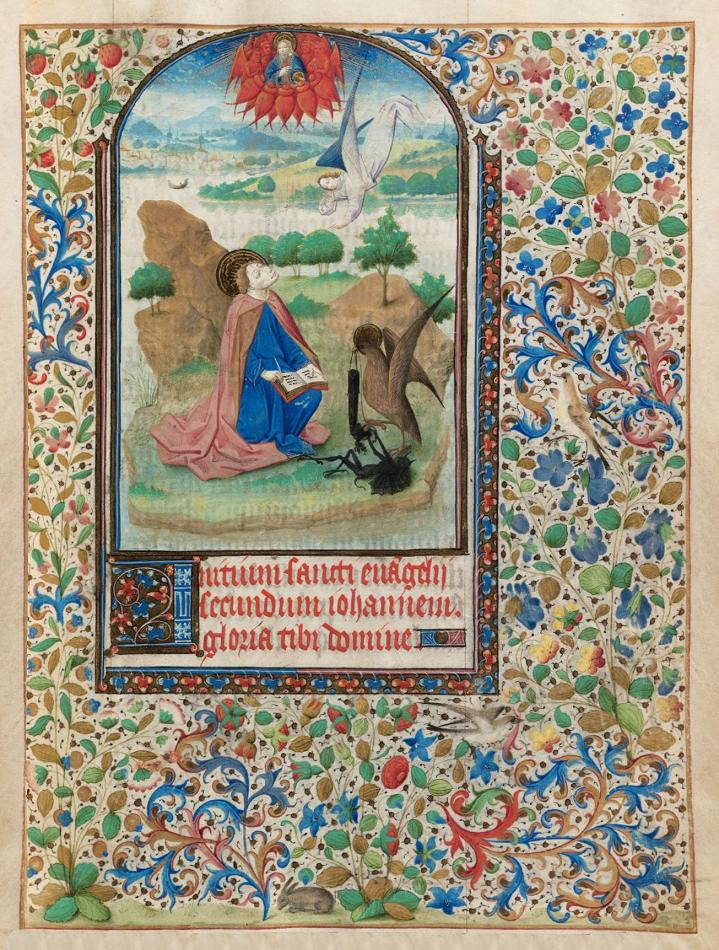 Initium sancti euãgelij
secundum iohannem.
gloria tibi domine